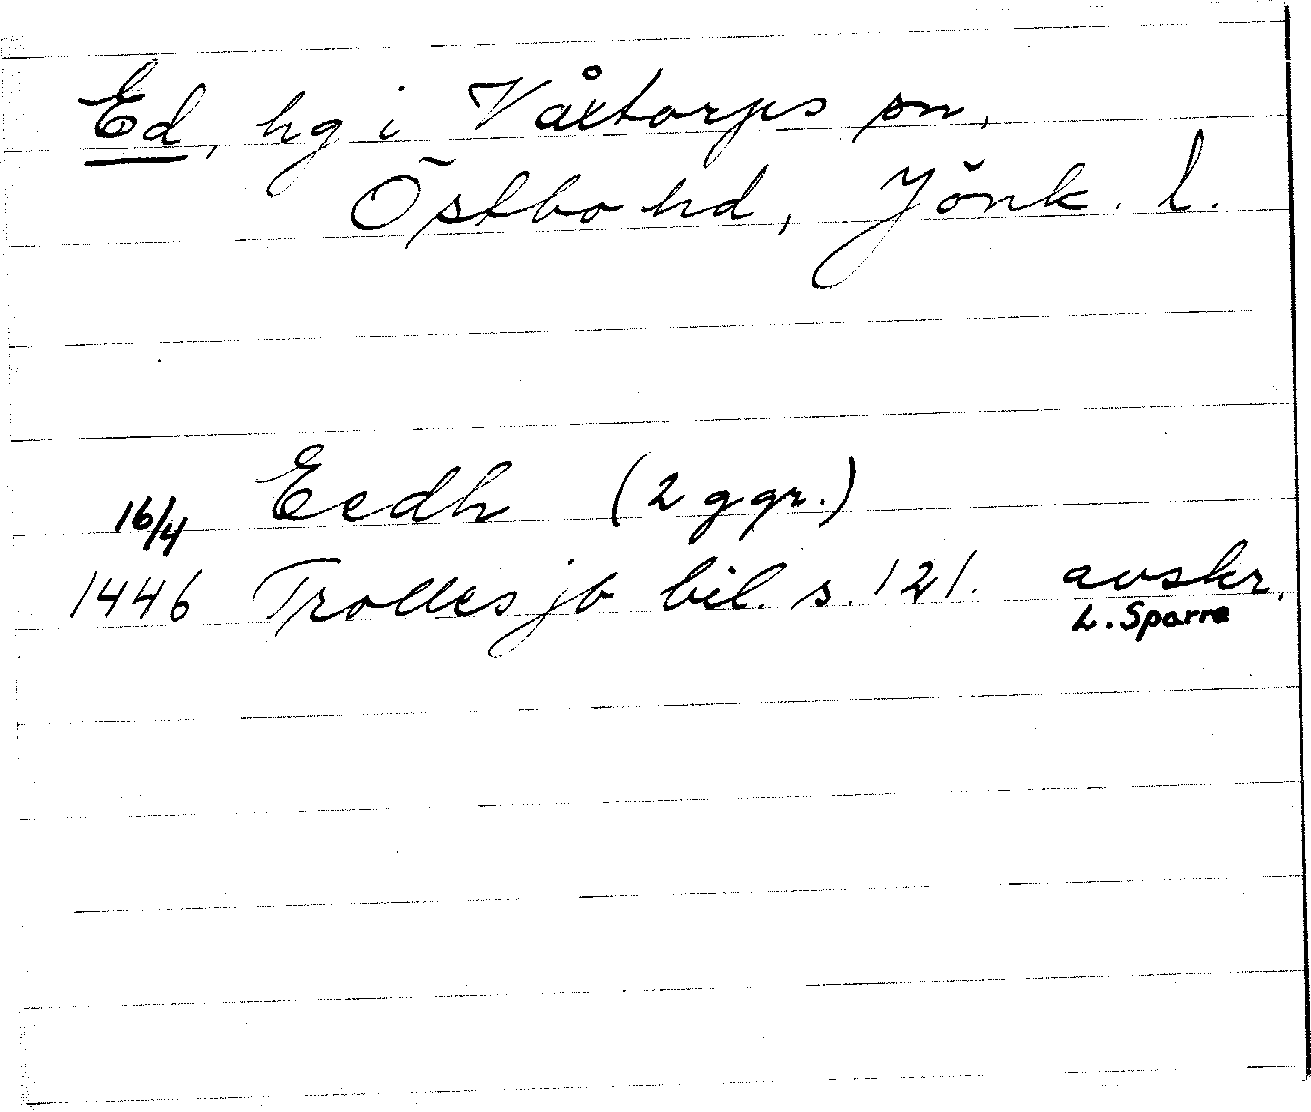 Ed, hg i Våxtorps sn,
Östbo hd, Jönk. l.
16/4 Eedh (2 ggr.)
1446 Trolles jb bil. s. 121. avskr.
L. Sparre